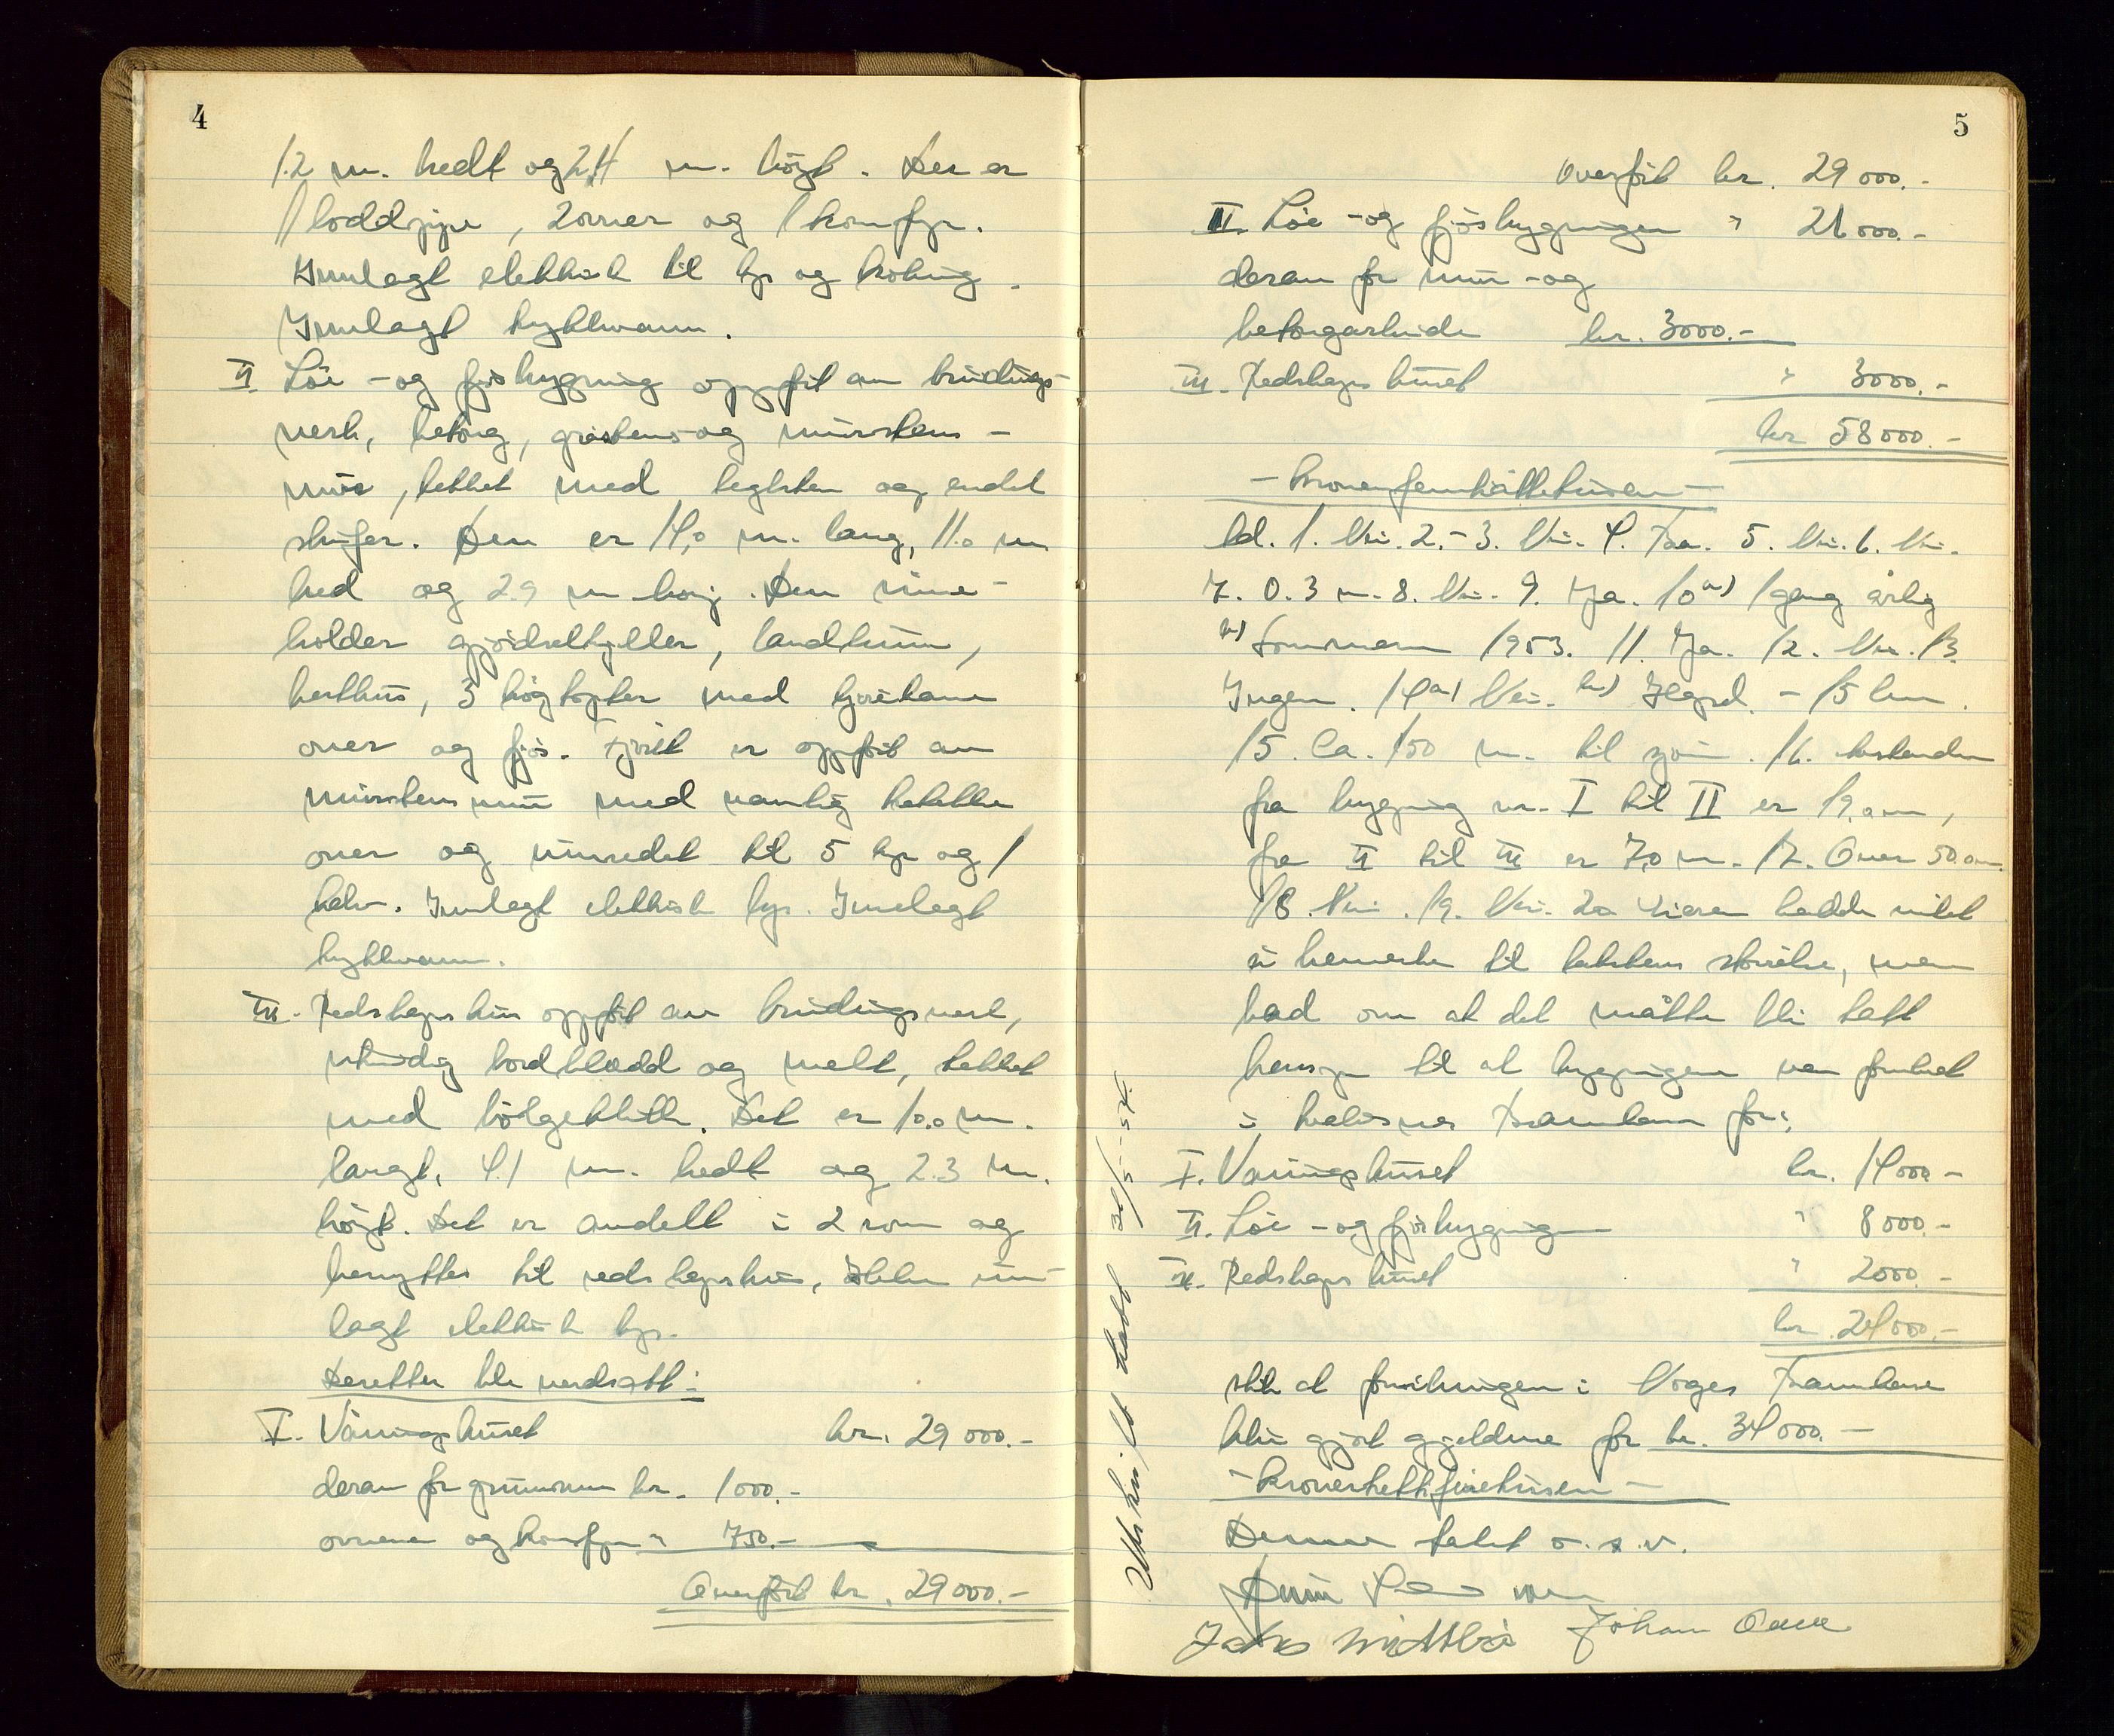 4
1.2 m. bredt og 2.4 m. högt. Der er
1 loddpipe, 2 ovner og 1 komfyr.
Innlagt elektrisk til lys og koking.
Innlagt trykkvann.
II Löe - og fjösbygning oppfört av bindings-
verk, betong, gråstens- og murstens-
mur, tekket med teglsten og endel
skifer. Den er 14,0 m. lang, 11.0 m
bred og 2.9 m höy. Den inne-
holder gjödselkjeller, landkum,
hesthus, 3 högtopter med kjörebane
over og fjös. Fjöset er oppfört av
murstensmur med vanlig bekettke
over og innredet til 5 kyr og 1
kalv. Innlagt elektrisk lys. Innlagt
trykkvann.
III. Redskapshus oppfört av bindingsverk,
utvendig bordklædd og malt, tekket
med bölgeblikk. Det er 10,0 m.
langt, 4.1 m. bredt og 2.3 m.
högt. Det er avdelt i 2 rom og
benyttes til redskapshus, Ikke inn-
lagt elektrisk lys.
Deretter ble verdsatt:
I. Våningshuset kr. 29 000.-
derav for grunnmur kr. 1000.-
ovnene og komfyr " 750.-
Overfört kr. 29 000.-
5
Overfört kr. 29 000.-
II. Löe - og fjösbygningen " 26 000.-
derav for mur - og
betongarbeide kr. 3000.-
III. Redskapshuset " 3000.-
kr 58 000.-
- Kronerfemtiåttetusen -
Ad. 1. Nei. 2. - 3. Nei. 4. Bra. 5. Nei. 6. Nei.
7. 0.3 m. 8. Nei. 9. Ja. 10 a) 1 gang årlig
b) Sommeren 1953. 11. Ja. 12. Nei. 13.
Ingen. 14 a) Nei. b) - 15 km.
15. Ca. 150 m. til sjöen. 16. Avstanden
fra bygning nr. I til II er 19,0 m,
fra II til III er 7,0 m. 17. Over 50.0 m
18. Nei. 19. Nei. 20. Eieren hadde intet
å bemerke til takstens störrelse, men
bad om at det måtte bli tatt
hensyn til at bygningene var forsikret
i Brannkasse for:
I. Våningshuset kr. 14 000.-
II. Löe - og fjösbygningen " 8 000.-
III. Redskapshuset " 2000.-
kr. 24 000.-
slik at forsikringen i Norges Brannkasse
blir gjort gjeldende for kr. 34 000.-
- Kronertrettifiretusen -
Denne takst o. s. v.
Johann
Utskrift tatt 31/5-54.